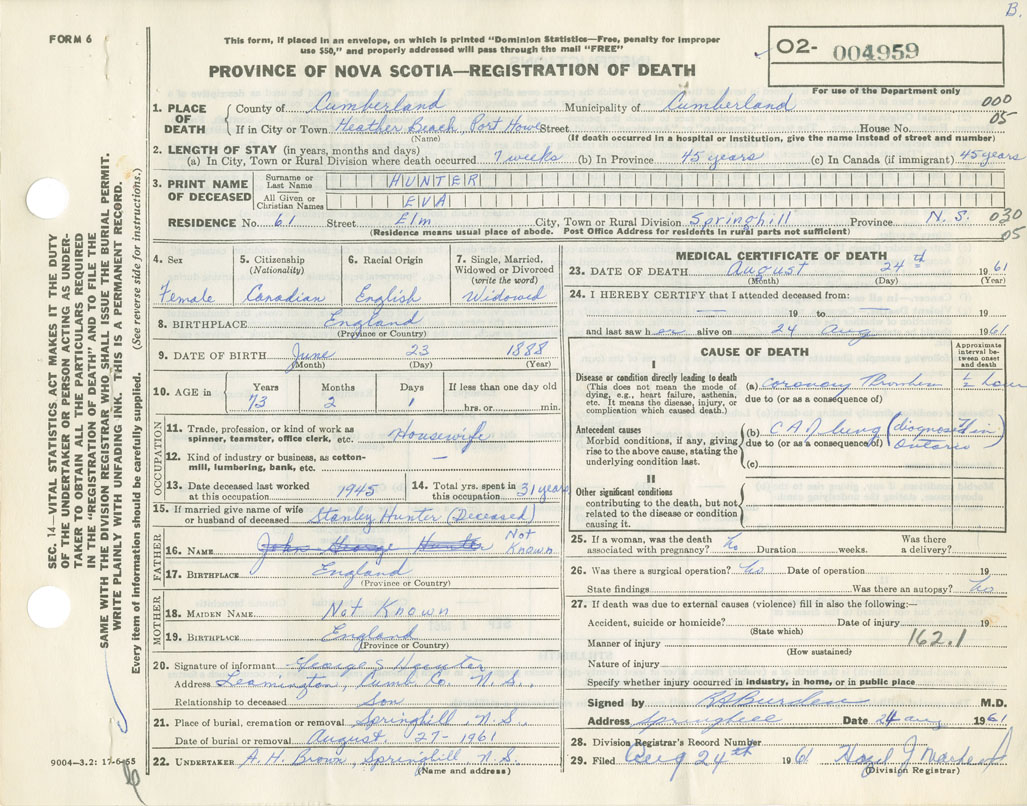 B.
FORM 6
This form, if placed in an envelope, on which is printed "Dominion Statistics—Free, penalty for improper
use $50," and properly addressed will pass through the mail "FREE"
02- 004959
PROVINCE OF NOVA SCOTIA—REGISTRATION OF DEATH
For use of the Department only
1. PLACE OF DEATH County of Cumberland Municipality of Cumberland 000
If in City or Town Heather Beach, Port Howe Street House No. 05
(Name) (If death occurred in a hospital or institution, give the name instead of street and number)
2. LENGTH OF STAY (in years, months and days)
(a) In City, Town or Rural Division where death occurred 7 weeks (b) In Province 45 years (c) In Canada (if immigrant) 45 years
3. PRINT NAME OF DECEASED Surname or Last Name HUNTER
All Given or Christian Names EVA
RESIDENCE No. 61 Street Elm City, Town or Rural Division Springhill Province N. S. 030
(Residence means usual place of abode. Post Office Address for residents in rural parts not sufficient) 05
4. Sex 5. Citizenship (Nationality) 6. Racial Origin 7. Single, Married, Widowed or Divorced (write the word)
Female Canadian English Widowed
8. BIRTHPLACE England
(Province or Country)
9. DATE OF BIRTH June 23 1888
(Month) (Day) (Year)
10. AGE in Years Months Days If less than one day old
73 2 1 hrs. or min.
OCCUPATION
11. Trade, profession, or kind of work as spinner, teamster, office clerk, etc. Housewife
12. Kind of industry or business, as cotton-mill, lumbering, bank, etc. —
13. Date deceased last worked at this occupation 1945 14. Total yrs. spent in this occupation 31 years
15. If married give name of wife or husband of deceased Stanley Hunter (Deceased)
FATHER
16. NAME John George Hunter Not Known
17. BIRTHPLACE England
(Province or Country)
MOTHER
18. MAIDEN NAME Not Known
19. BIRTHPLACE England
(Province or Country)
20. Signature of informant George S Hunter
Address Leamington, Cumb Co. N. S.
Relationship to deceased Son
21. Place of burial, cremation or removal Springhill N. S.
Date of burial or removal August 27-1961
22. UNDERTAKER A. H. Brown, Springhill N. S.
(Name and address)
MEDICAL CERTIFICATE OF DEATH
23. DATE OF DEATH August 24th 1961
(Month) (Day) (Year)
24. I HEREBY CERTIFY that I attended deceased from:
— 19 to — 19
and last saw her alive on 24 Aug 1961
CAUSE OF DEATH
Approximate interval between onset and death
I
Disease or condition directly leading to death (a) coronary ½ hour
(This does not mean the mode of dying, e.g., heart failure, asthenia, etc. It means the disease, injury, or complication which caused death.)
due to (or as a consequence of)
Antecedent causes (b) CA of lung (diagnosed in Ontario)
Morbid conditions, if any, giving rise to the above cause, stating the underlying condition last.
due to (or as a consequence of)
(c)
II
Other significant conditions
contributing to the death, but not related to the disease or condition causing it.
25. If a woman, was the death associated with pregnancy? No Duration weeks. Was there a delivery?
26. Was there a surgical operation? No Date of operation 19
State findings Was there an autopsy? No
27. If death was due to external causes (violence) fill in also the following:—
Accident, suicide or homicide? Date of injury 19
(State which)
Manner of injury 162.1
(How sustained)
Nature of injury
Specify whether injury occurred in industry, in home, or in public place
Signed by Burden M.D.
Address Springhill Date 24 Aug 1961
28. Division Registrar's Record Number
29. Filed Aug 24th 1961 Hazel J
(Division Registrar)
SEC. 14—VITAL STATISTICS ACT MAKES IT THE DUTY
OF THE UNDERTAKER OR PERSON ACTING AS UNDER-
TAKER TO OBTAIN ALL THE PARTICULARS REQUIRED
IN THE "REGISTRATION OF DEATH" AND TO FILE THE
SAME WITH THE DIVISION REGISTRAR WHO SHALL ISSUE THE BURIAL PERMIT.
WRITE PLAINLY WITH UNFADING INK. THIS IS A PERMANENT RECORD.
Every item of information should be carefully supplied. (See reverse side for instructions.)
9004—3.2: 17-6-55